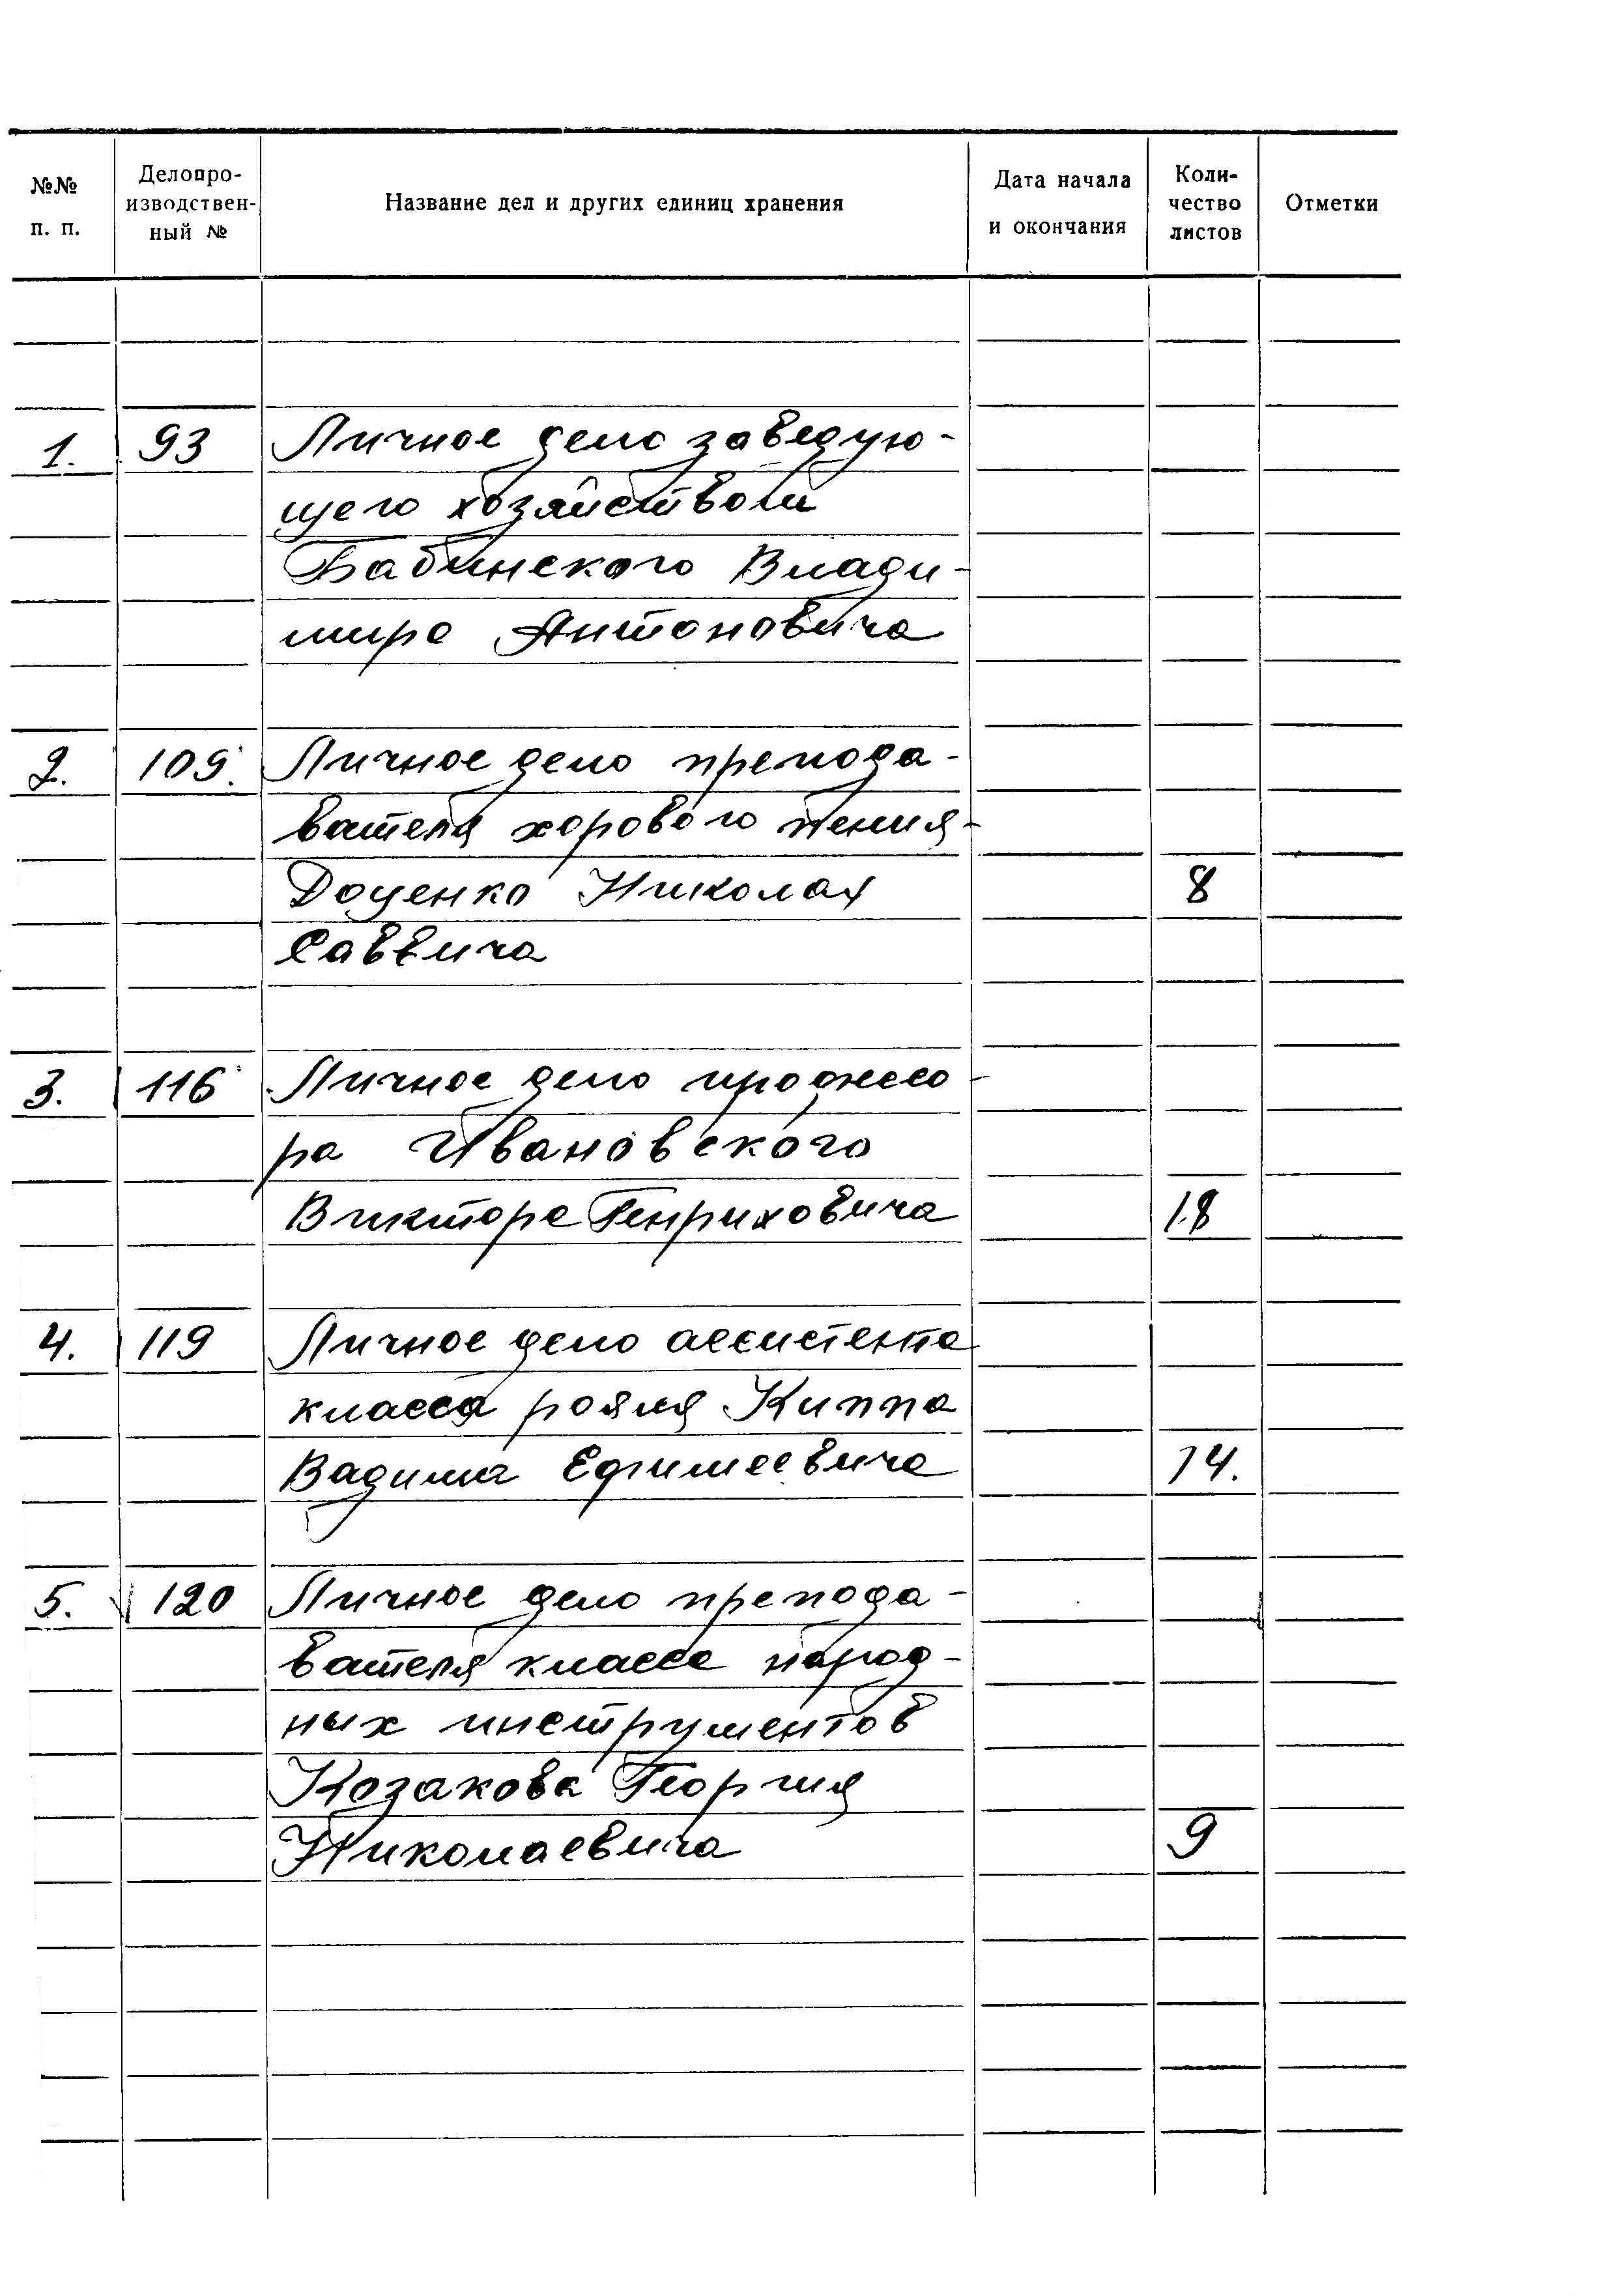 №№
п. п.
Делопро-
изводствен-
ный №
Название дел и других единиц хранения
Дата начала
и окончания
Коли-
чество
листов
Отметки
1. 93 Личное дело заведую-
щего хозяйством
Бабинского Влади-
мира Антоновича
2. 109. Личное дело препода-
вателя хорового пения-
Доценко Николая 8
Саввича
3. 116 Личное дело професо-
ра Ивановского
Виктора Генриховича 18
4. 119 Личное дело ассистента
класса рояля Киппа
Вадима Ефимеевича 14.
5. 120 Личное дело препода-
вателя класса народ-
ных инструментов
Козакова Георгия
Николаевича 9